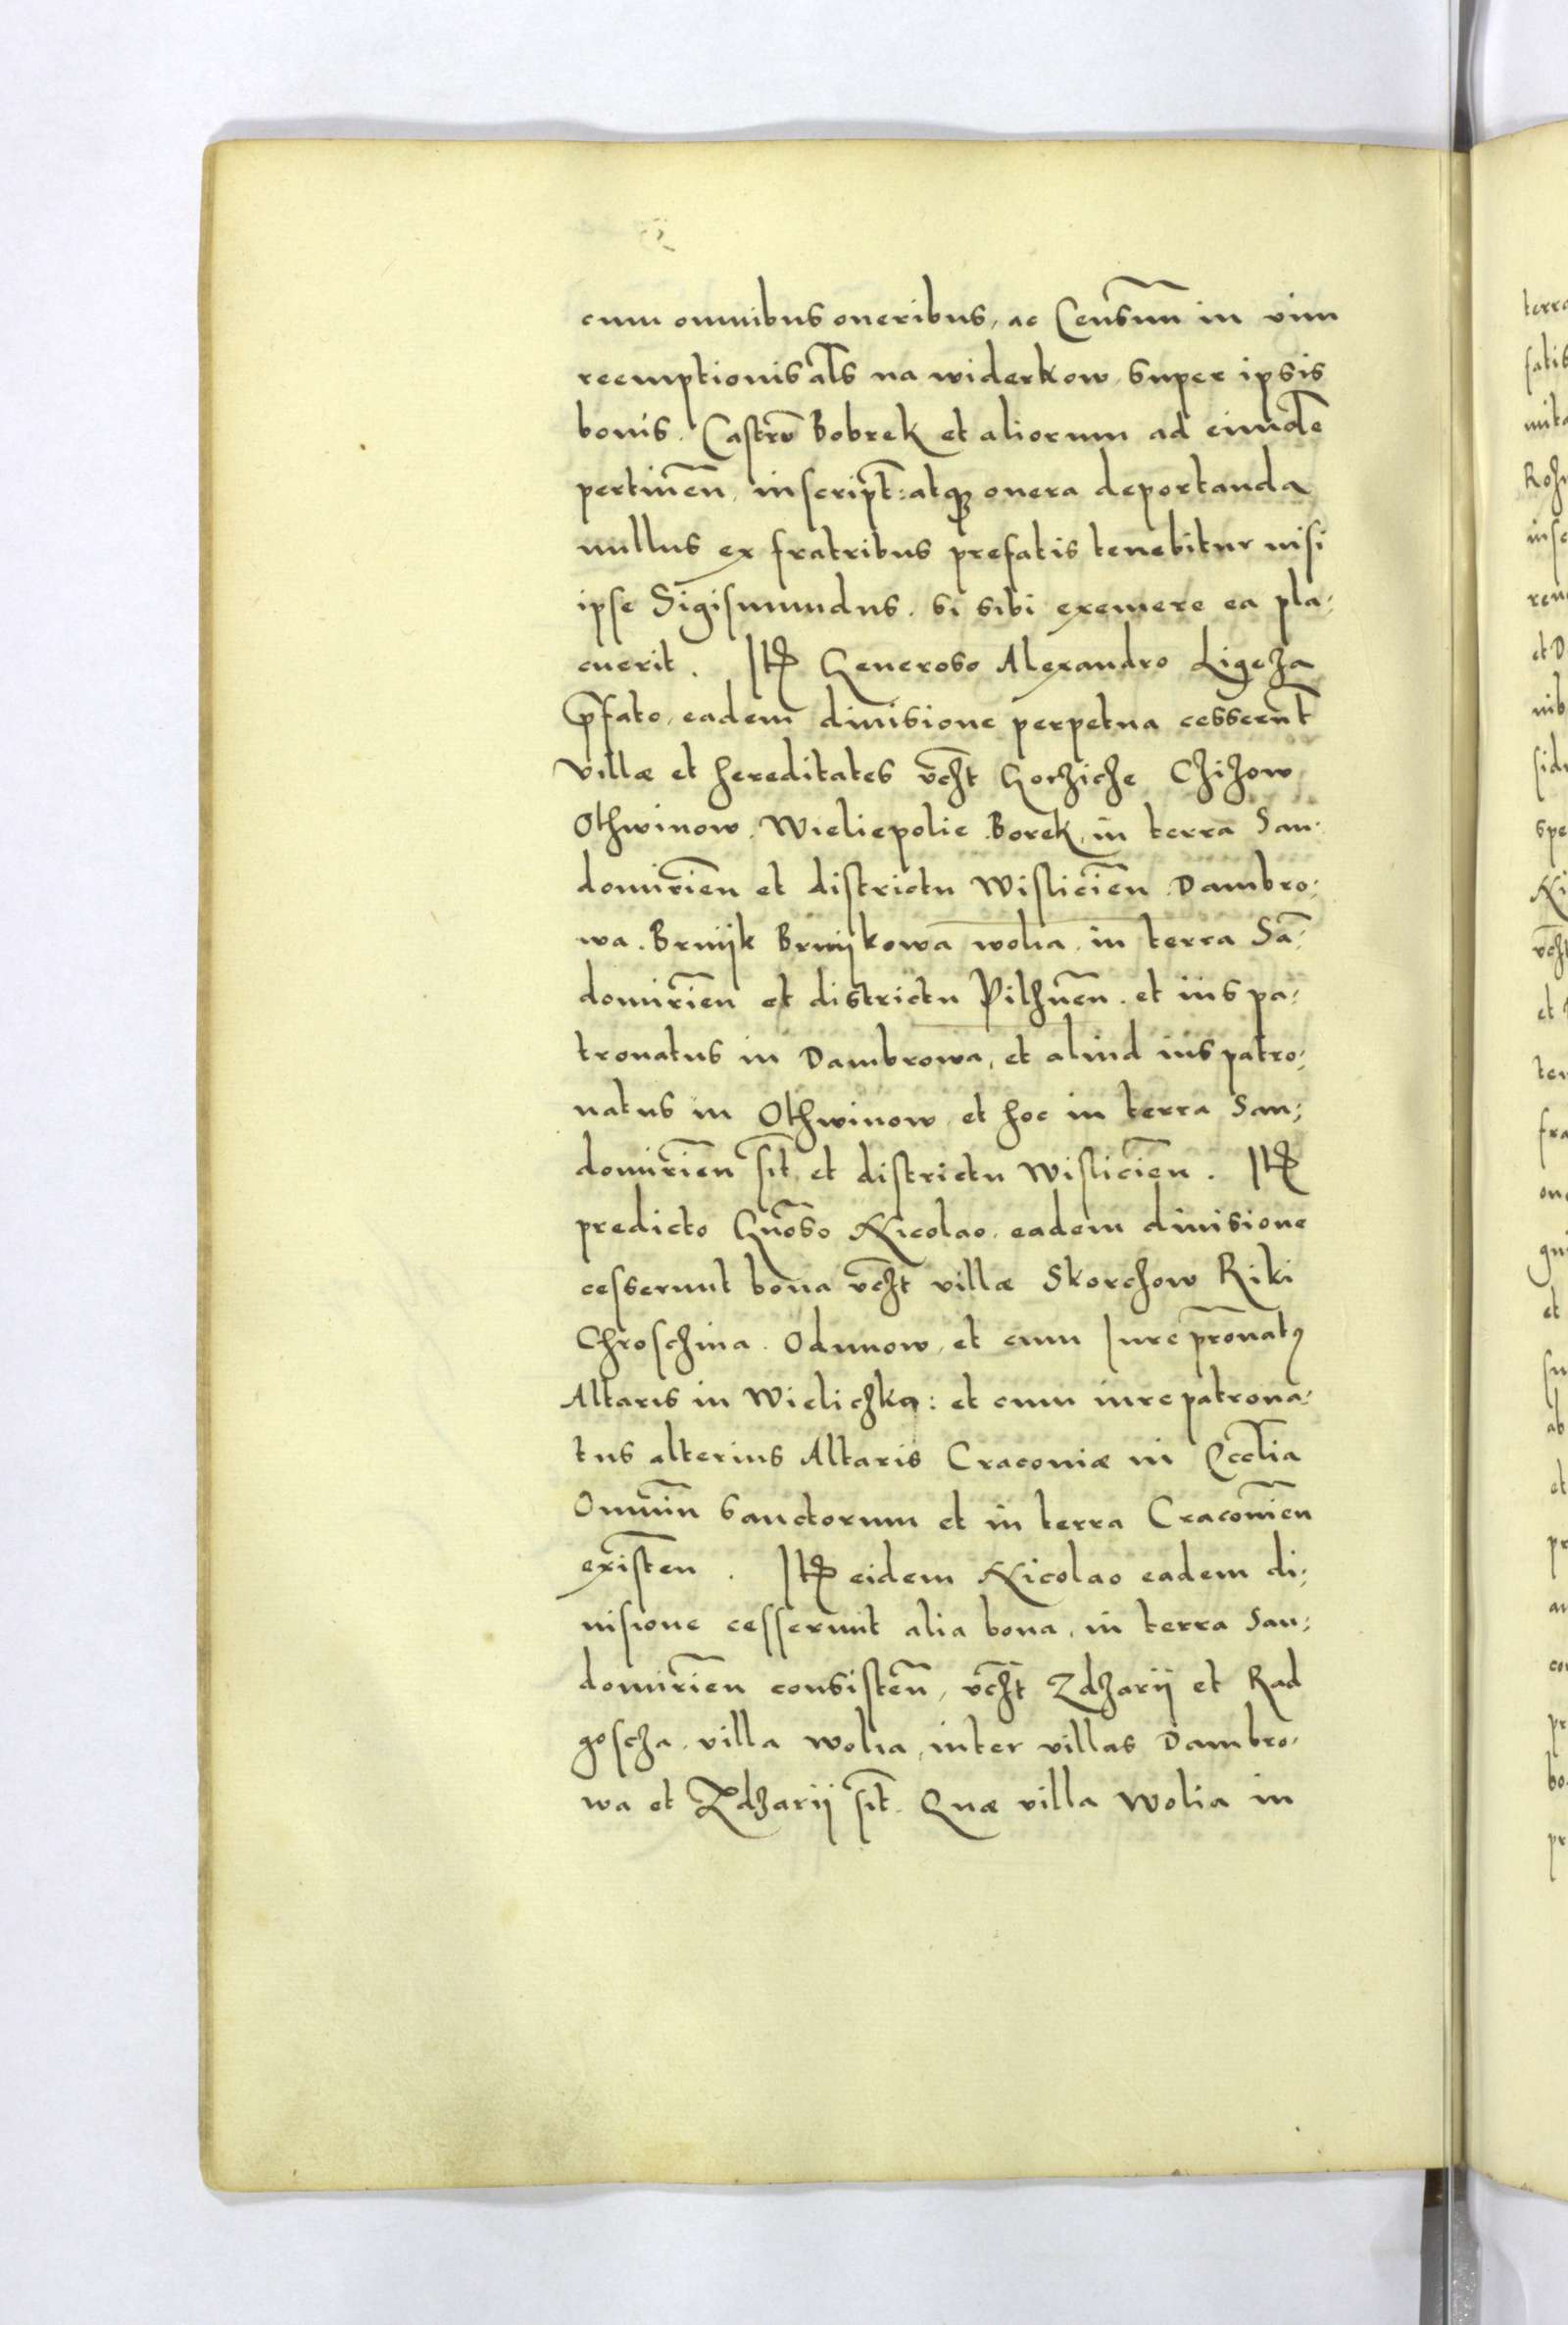 cum omnibus oneribus, ac Censuū in vim
reemptionis als̄ na widerkow, super ipsis
bonis. Castrū Bobrek et aliorum ad eiusdē
pertineñ, inscript̄: atq₃ onera deportanda
nullus ex fratribus prefatis tenebitur nisi
ipse Sigismundus. si sibi exemere ea pla⸗
cuerit. Itꝫ Generoso Alexandro Ligeza
p̄fato, eadem diuisione perpetua cesserūt
villæ et hereditates vc̄ht Gorziche Chizow
Othwinow. Wieliepolie. Borek, in terra San⸗
domirień et districtu Wislicień. Dambro⸗
wa. Brnijk Brnijkowa wolia, in terra Sā⸗
domirień et districtu Pilzneñ. et ius pa⸗
tronatus in Dambrowa, et aliud ius patro⸗
natus in Othwinow et hoc in terra San⸗
domirień sīt, et districtu Wislicień. Itꝫ
predicto Gn̄oso Nicolao, eadem diuisione
cesserunt bona vc̄ht villæ Skorchow Riki
Chroschina. Odunow, et cum Iure pr̄onatꝰ
Altaris in Wielichka: et cum iure patrona⸗
tus alterius Altaris Cracoviæ in Eccl̄ia
Omniū Sanctorum et in terra Cracovień
existeñ. Itꝫ eidem Nicolao eadem di⸗
uisione cesserunt alia bona, in terra San⸗
domirień consisteñ, vc̄ht Zdzarij et Rad
goscza, villa wolia, inter villas Dambro⸗
wa et Zdzarij sīt. Quæ villa Wolia in